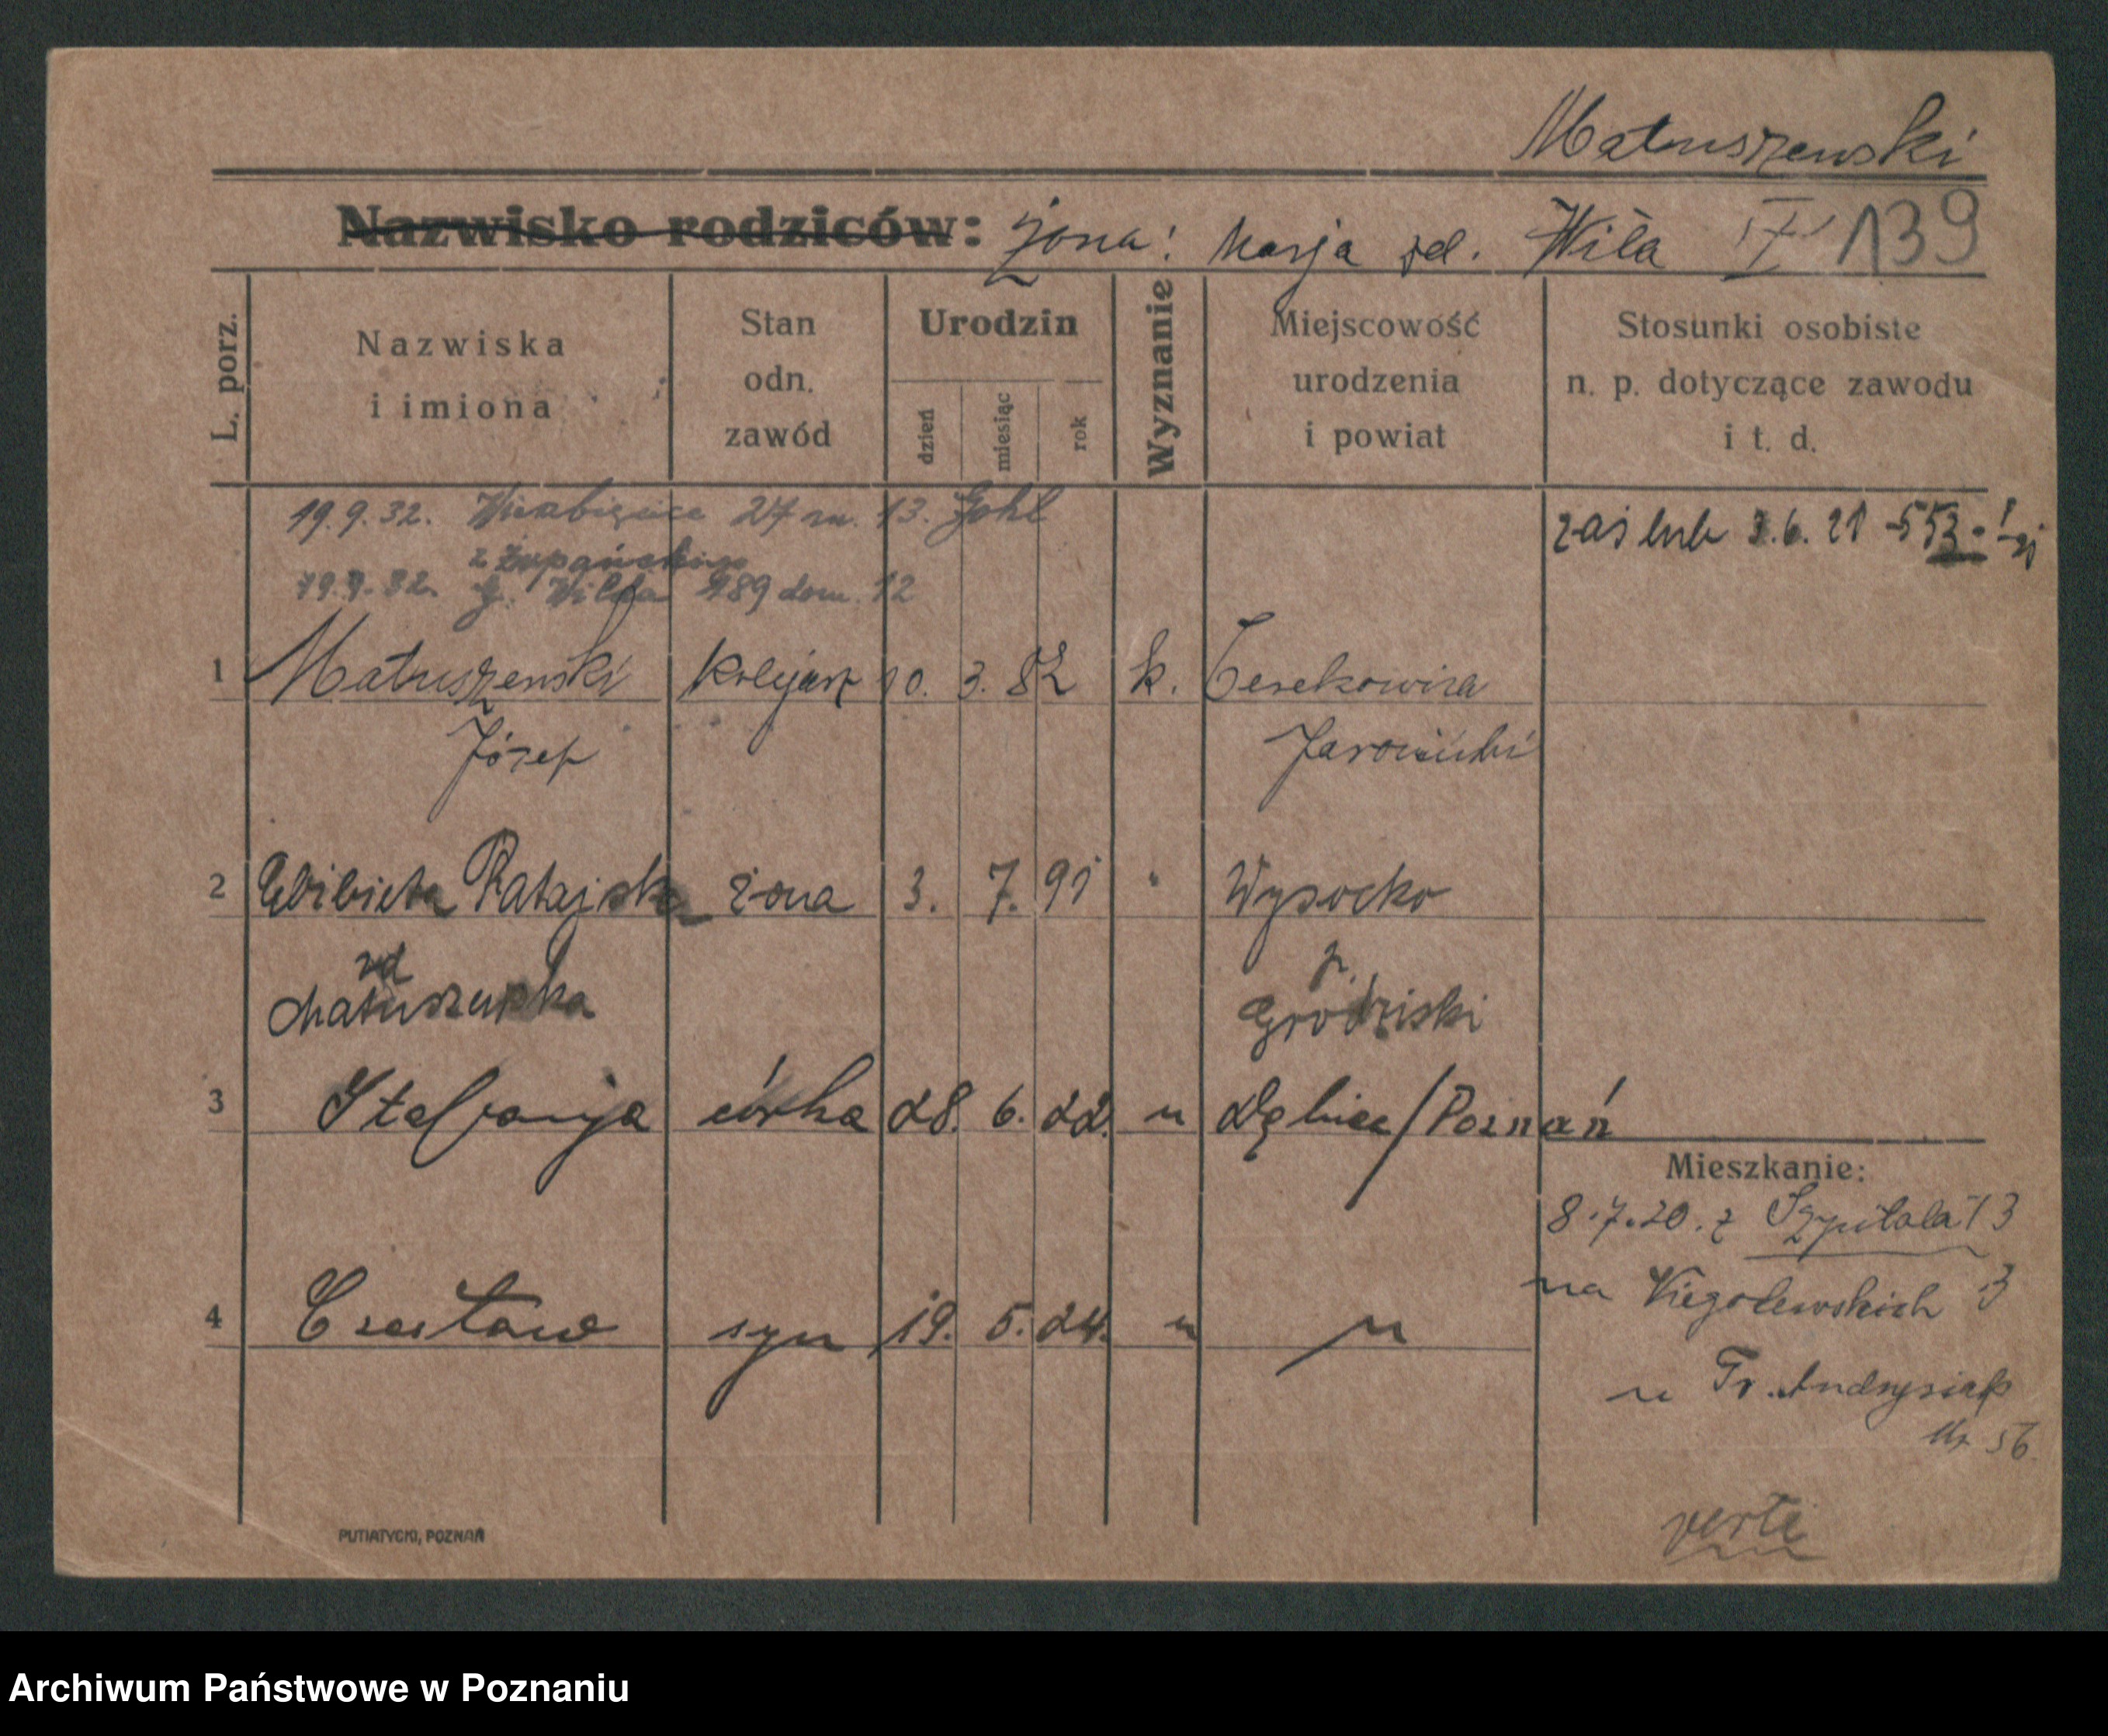 Matuszewski
Nazwisko rodziców: żona: Marja zd. Wiła 139
L. porz.
Nazwiska i imiona
Stan odn. zawód
Urodzin
dzień miesiąc rok
Wyznanie
Miejscowość urodzenia i powiat
Stosunki osobiste n. p. dotyczące zawodu i t. d.
19.9.32. 27 m. 13. Gohl
zaślub 3.6.21 553
z Żupańskiego
19.9.32. G. Wilda 189 dom. 12
1 Matuszewski Kolejarz 10. 3. 82 k.
Józef Jarociński
2 Elżbieta Ratajska żona 3. 7. 91 " Wysocko
zd Matuszewska p. Grodziski
3 Stefanja córka 28. 6. 22. " Dębiec/Poznań
Mieszkanie:
8.7.20. z Szpitala 13
na Niegolewskich 3
4 Czesław syn 19. 5. 24. " "
u Fr. Andrzysiak
56.
verte
PUTIATYCKI, POZNAŃ
Archiwum Państwowe w Poznaniu